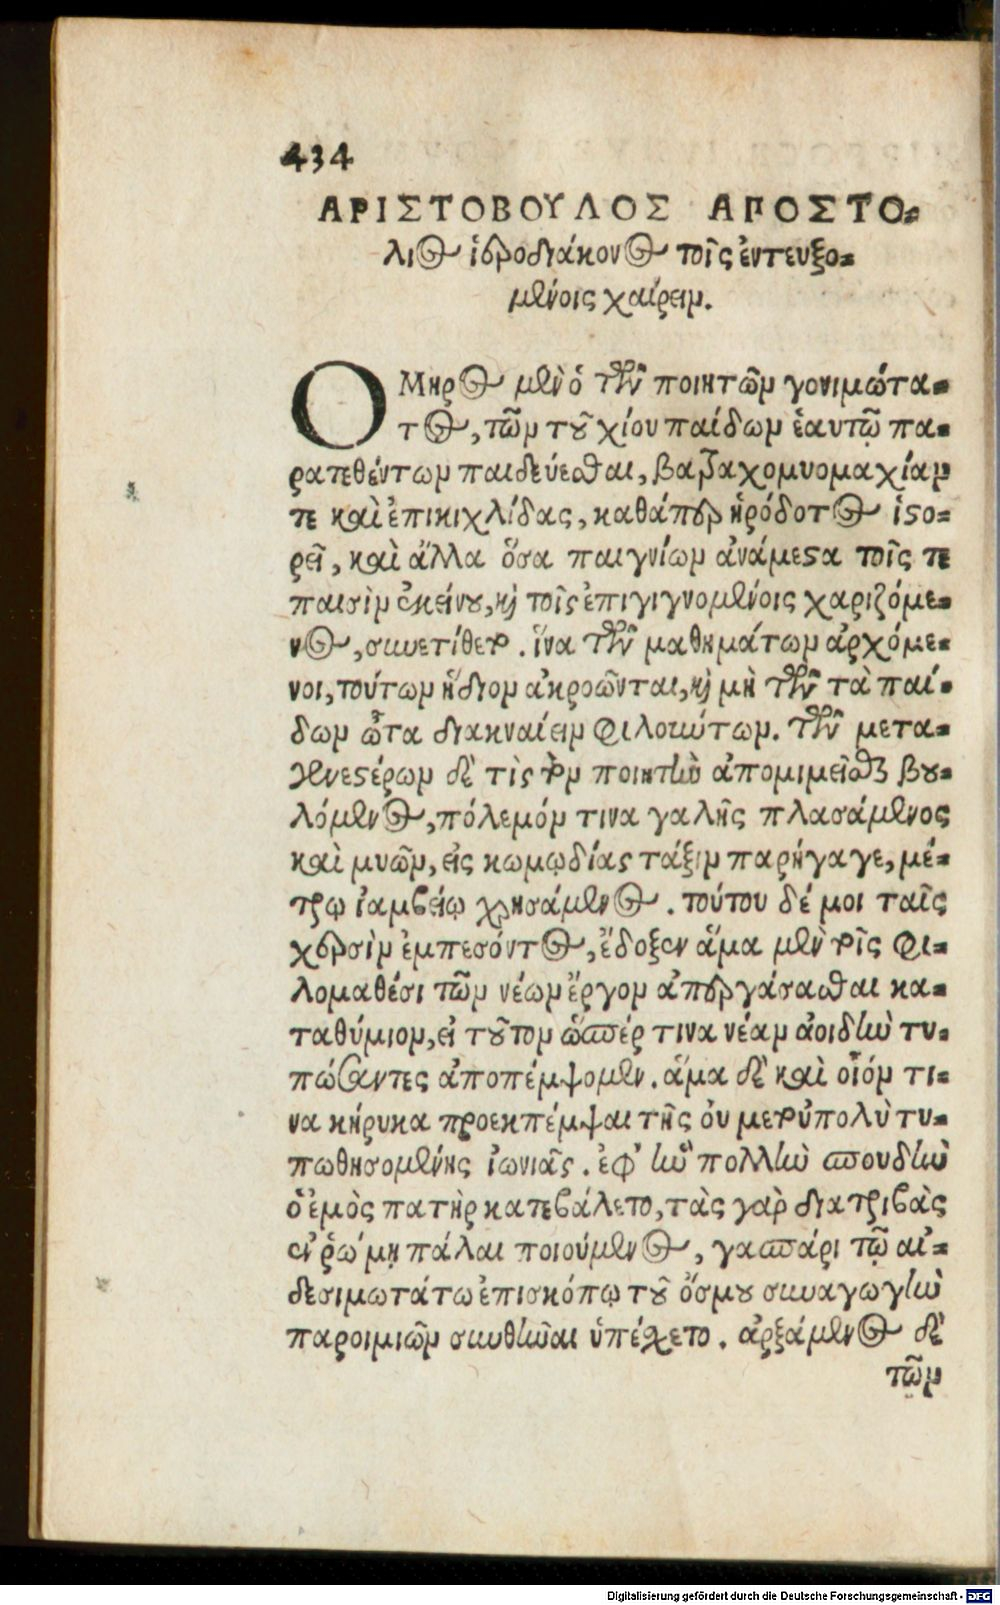 434
ΑΡΙΣΤΟΒΟΥΛΟΣ ΑΠΟΣΤΟ-
λιος ἱεροδιάκονος τοῖς ἐντευξο-
μένοις χαίρειν.
ΟΜηρος μὲν ὁ τῶν ποιητῶν γονιμώτα-
τος, τῶν τοῦ χίου παίδων ἑαυτῷ πα-
ρατεθέντων παιδεύεσθαι, βατραχομυομαχίαν
τε καὶ ἐπικιχλίδας, καθάπερ ἡρόδοτος ἱστο-
ρεῖ, καὶ ἄλλα ὅσα παιγνίων ἀνάμεστα τοῖς τε
παισὶν ἐκείνου, καὶ τοῖς ἐπιγιγνομένοις χαριζόμε-
νος, συνετίθετο. ἵνα τῶν μαθημάτων ἀρχόμε-
νοι, τούτων ἥδιον ἀκροῶνται, καὶ μὴ τῶν τὰ παί-
δων ὦτα διακναίειν φιλούντων. τῶν μετα-
γενεστέρων δέ τις τὸν ποιητὴν ἀπομιμεῖσθαι βου-
λόμενος, πόλεμόν τινα γαλῆς πλασάμενος
καὶ μυῶν, εἰς κωμῳδίας τάξιν παρήγαγε, μέ-
τρῳ ἰαμβείῳ χρησάμενος. τούτου δέ μοι ταῖς
χερσὶν ἐμπεσόντος, ἔδοξεν ἅμα μὲν τοῖς φι-
λομαθέσι τῶν νέων ἔργον ἀπεργάσασθαι κα-
ταθύμιον, εἰ τοῦτον ὥσπέρ τινα νέαν ἀοιδὴν τυ-
πώσαντες ἀποπέμψομεν. ἅμα δὲ καὶ οἷόν τι-
να κήρυκα προεκπέμψαι τῆς οὐ μετοὐπολὺ τυ-
πωθησομένης ἰωνιᾶς. ἐφ' ἣν πολλὴν σπουδὴν
ὁ ἐμὸς πατὴρ κατεβάλετο, τὰς γὰρ διατριβὰς
ἐν ῥώμῃ πάλαι ποιούμενος, γασπάρι τῷ αἰ-
δεσιμωτάτω ἐπισκόπῳ τοῦ ὄσμου συναγωγὴν
παροιμιῶν συνθῆναι ὑπέχετο. ἀρξάμενος δὲ
τῶν
Digitalisierung gefördert durch die Deutsche Forschungsgemeinschaft - DFG